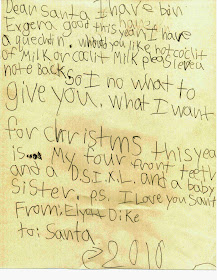 Dear Santa I have bin
Exgera good this year I have
a quechtin, whould you like hot coclit
of Milk or coclit Milk please leve a
note back so I no what to
give you. what I want
for christms this year
is... My tour front teeth
and a D.S.I.X.L. and a baby
Sister. ps. I love you Sant
From: Dike
to: Santa
2010